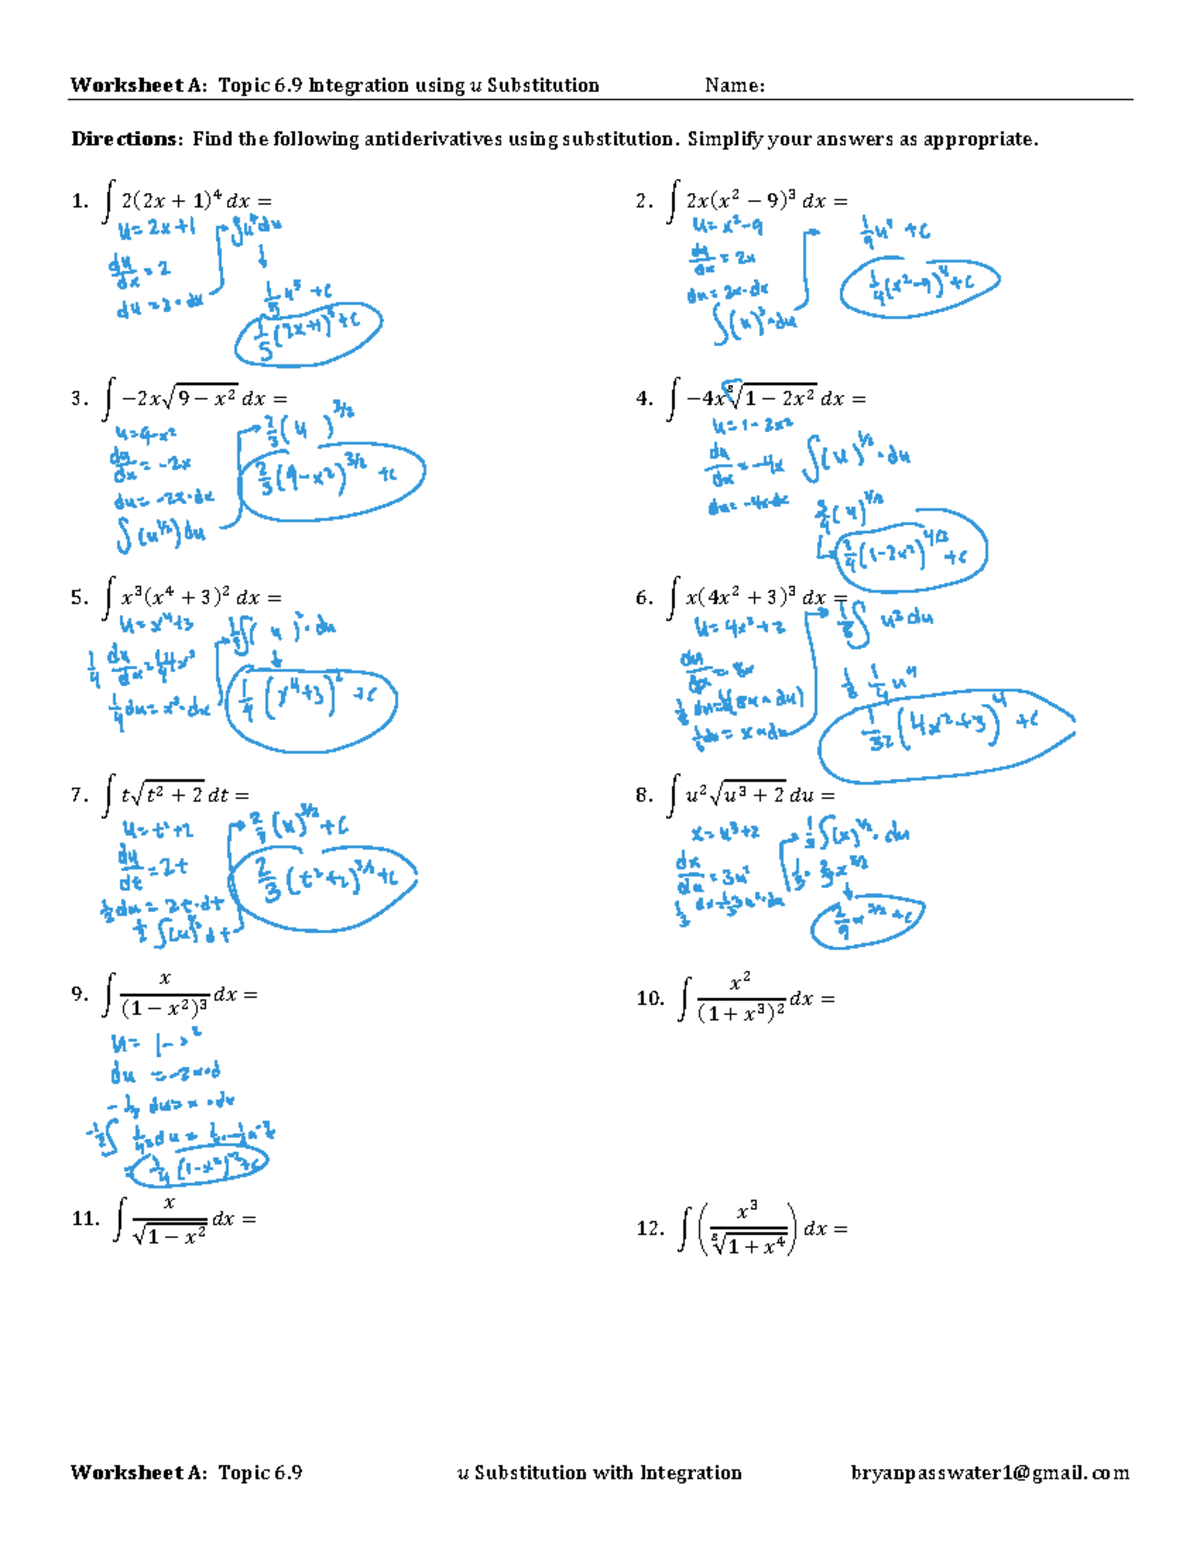 Worksheet A: Topic 6.9 Integration using u Substitution Name:
Directions: Find the following antiderivatives using substitution. Simplify your answers as appropriate.
1. ∫ 2(2x + 1)⁴ dx =
u = 2x+1
du/dx = 2
∫u⁴du
1/5 u⁵ + C
1/5 (2x+1)⁵ + C
2. ∫ 2x(x² − 9)³ dx =
u = x²-9
du/dx = 2x
du = 2x·dx
∫(u)³·du
1/4 (x²-9)⁴ + C
3. ∫ −2x√(9 − x²) dx =
du/dx = -2x
du = -2x·dx
∫(u^(1/2)) du
2/3 (u )^(3/2)
2/3 (9-x²)^(3/2) + C
4. ∫ −4x ∛(1 − 2x²) dx =
u = 1-2x²
du/dx = -4x
du = -4x·dx
∫(u)^(1/3)·du
3/4 (u)^(4/3)
3/4 (1-2x²)^(4/3) + C
5. ∫ x³(x⁴ + 3)² dx =
u = x⁴+3
1/4 du = x³·dx
1/4 ∫( u )²·du
1/4 (x⁴+3)² + C
6. ∫ x(4x² + 3)³ dx =
u = 4x²+3
du/dx = 8x
1/8 du = x·dx
1/8 ∫ u³du
1/8 1/4 u⁴
1/32 (4x²+3)⁴ + C
7. ∫ t√(t² + 2) dt =
u = t²+2
du/dt = 2t
1/2 du = 2t·dt
2/3 (u)^(3/2) + C
2/3 (t²+2)^(3/2) + C
8. ∫ u²√(u³ + 2) du =
x = u³+2
dx/du = 3u²
1/3 ∫(x)^(1/2)· du
1/3 · 2/3 x^(3/2)
2/9 x^(3/2) + C
9. ∫ x/(1 − x²)³ dx =
u = 1-x²
10. ∫ x²/(1 + x³)² dx =
11. ∫ x/√(1 − x²) dx =
12. ∫ (x³/∛(1 + x⁴)) dx =
Worksheet A: Topic 6.9 u Substitution with Integration bryanpasswater1@gmail.com